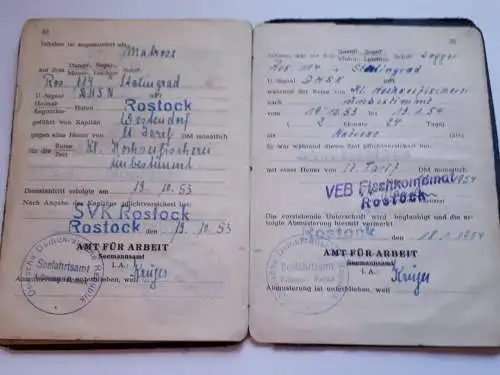 Inhaber ist angemustert als
Matrose
auf dem Dampf- Segel-
Motor- Leichter- Schiff
Ros 114 Stalingrad
U.-Signal DHSN
Heimat-
Register- Hafen Rostock
geführt von Kapitän
gegen eine Heuer von n. Tarif DM monatlich
für die Reise kl. Hochseefischerei
Zeit unbestimmt
Dienstantritt erfolgte am 19.10.53
Nach Angabe des Kapitäns pflichtversichert bei:
SVK Rostock
Rostock den 19.10.53
AMT FÜR ARBEIT
Seemannsamt
I. A.: Krüger
Abmusterung ist unterblieben, weil
Deutsche Demokratische Republik
Seefahrtsamt
35
Inhaber war auf dem Dampf- Segel-
Motor- Leichter- Schiff Logger
Ros 114 Stalingrad
U.-Signal DHSN
während der Reise von kl. Hochseefischerei
nach unbestimmt
vom 19.10.53 bis 13.1.54
( 2 Monate 24 Tage)
als Matrose
Er war während dieser Zeit pflichtversichert bei:
mit einer Heuer von n. Tarif DM monatlich
VEB Fischkombinat
Rostock
1954
Die vorstehende Unterschrift wird beglaubigt und die er-
folgte Abmusterung hierauf vermerkt
Rostock den 18.1.1954
AMT FÜR ARBEIT
Seemannsamt
I. A.: Krüger
Seefahrtsamt
Abmusterung ist unterblieben, weil